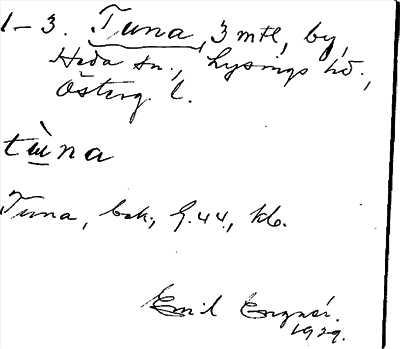 1-3. Tuna, 3 mtl, by,
Heda sn., Lysings hd.,
Österg. l.
tùna
Tuna, bek., G.44., kb.
Emil
1929.